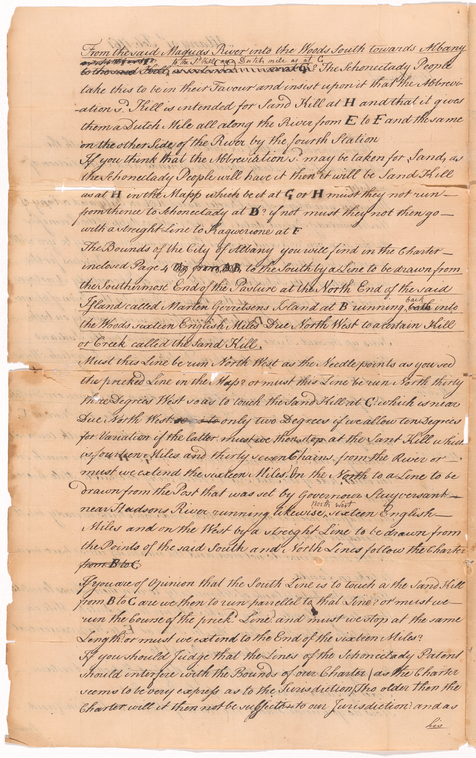 From the said Maquas River into the Woods South towards Albany
to the Sd Kill, as Dutch mile as at C
to the sand Kill, and G? The Schonectady People
take this to be in their Favour and insist upon it that the Abbrevi-
ation sd. Kill is intended for Sand Kill at H and that it gives
them a Dutch Mile all along the River from E to F and the same
on the other Side of the River by the fourth Station
If you think that the Abbreviation sd. may be taken for Sand, as
the Schonectady People will have it then it will be Sand Kill
as at H in the Mapp which be it at G or H must they not run
from thence to Schonectady at B? if not must they not then go
with a streight Line to Kaquerione at F
The Bounds of the City of Albany you will find in the Charter
inclosed Page 4 to the South by a Line to be drawn from
the Southermost End of the Pasture at the North End of the said
Island called Marten Gerritsens Island at B running back into
the Woods sixteen English Miles Due North West to a certain Kill
or Creek called the Sand Kill.
Must this Line be run North West as the Needle points as you see d
the pricked Line in the Map? or must this Line be run North thirty
three Degrees West so as to touch the Sand Kill at C, which is near
Due North West only two Degrees if we allow ten Degrees
for Variation of the latter. must we then stop at the Sant Kill which
is fourteen Miles and thirty seven Chains, from the River or
must we extend the sixteen Miles. On the North to a Line to be
drawn from the Post that was set by Governour Stuyvesant
north west
near Hudsons River running likewise, sixteen English
Miles and on the West by a Streight Line to be drawn from
the Points of the said South and North Lines follow the Charter
from B to C
If you are of Opinion that the South Line is to touch a the Sand Kill
from B to C are we then to run parrelled to that Line? or must we
run the Course of the prick'd Line and must we stop at the same
Length? or must we extend to the End of the sixteen Miles?
If you should Judge that the Lines of the Schonectady Patent
should interfere with the Bounds of our Charter (as the Charter
seems to be very express as to the Jurisdiction) tho older then the
Charter will it then not be subject to our Jurisdiction? and as
his